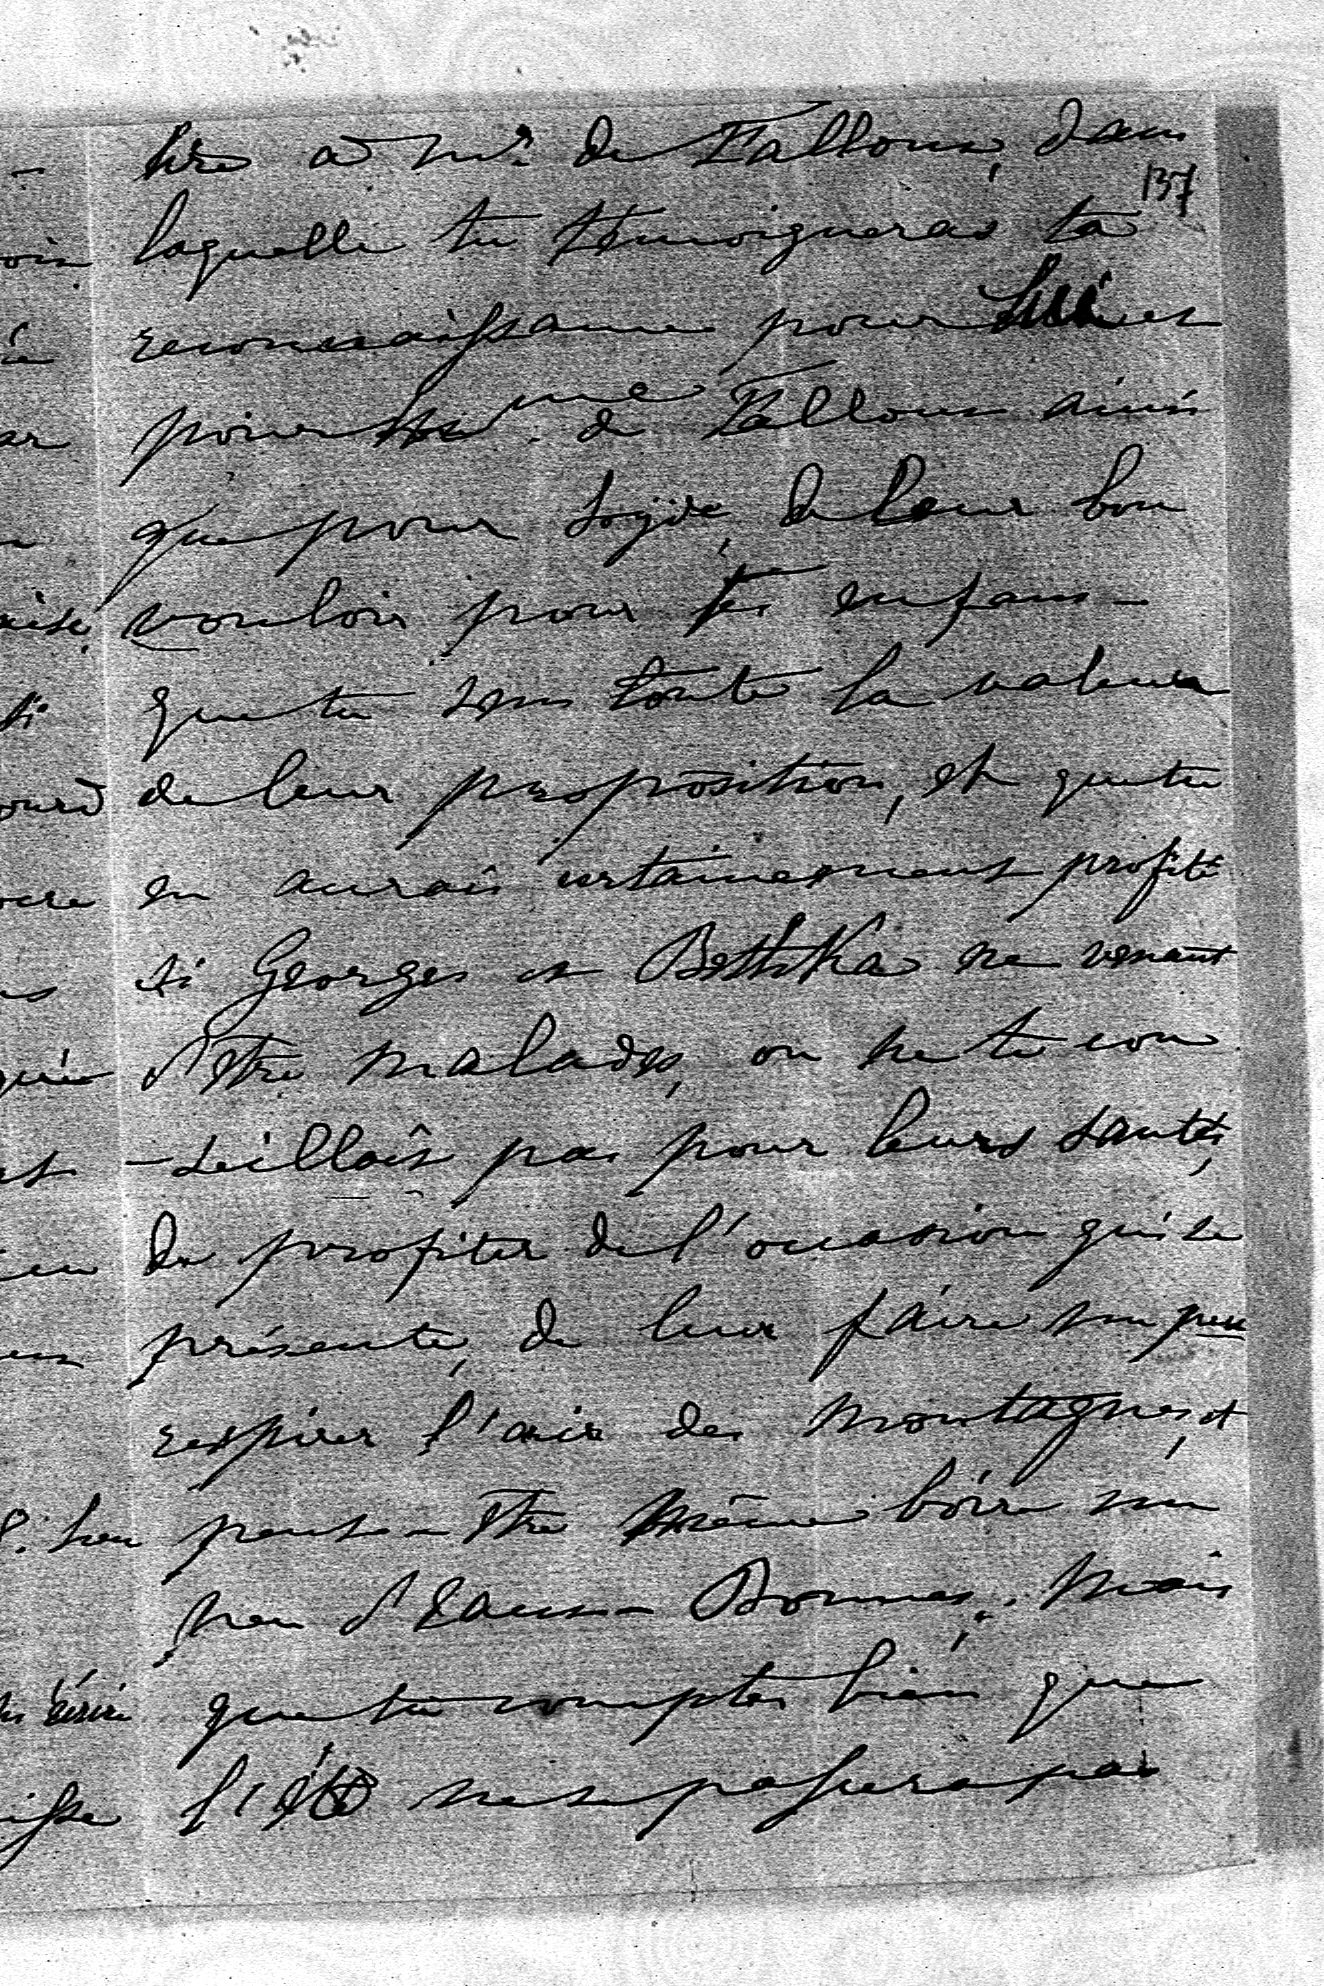 tre à Mr. de Falloux, dans
137
laquelle tu témoigneras ta
reconnaissance pour lui et
pour Mme. de Falloux ainsi
que pour Loyde, de leur bon
vouloir pour tes enfans –
que tu sens toute la valeur
de leur proposition, et que tu
en aurais certainement profité
si Georges et Bettska ne venant
d'être malades, on ne te con
– seilloit pas pour leurs santés,
de profiter de l'occasion qui se
présente, de leur faire un peu
respirer l'air des montagnes, et
peut-être même boire un
peu d'Eaux-Bonnes. Mais
que tu comptes bien que
l'été ne se passera pas